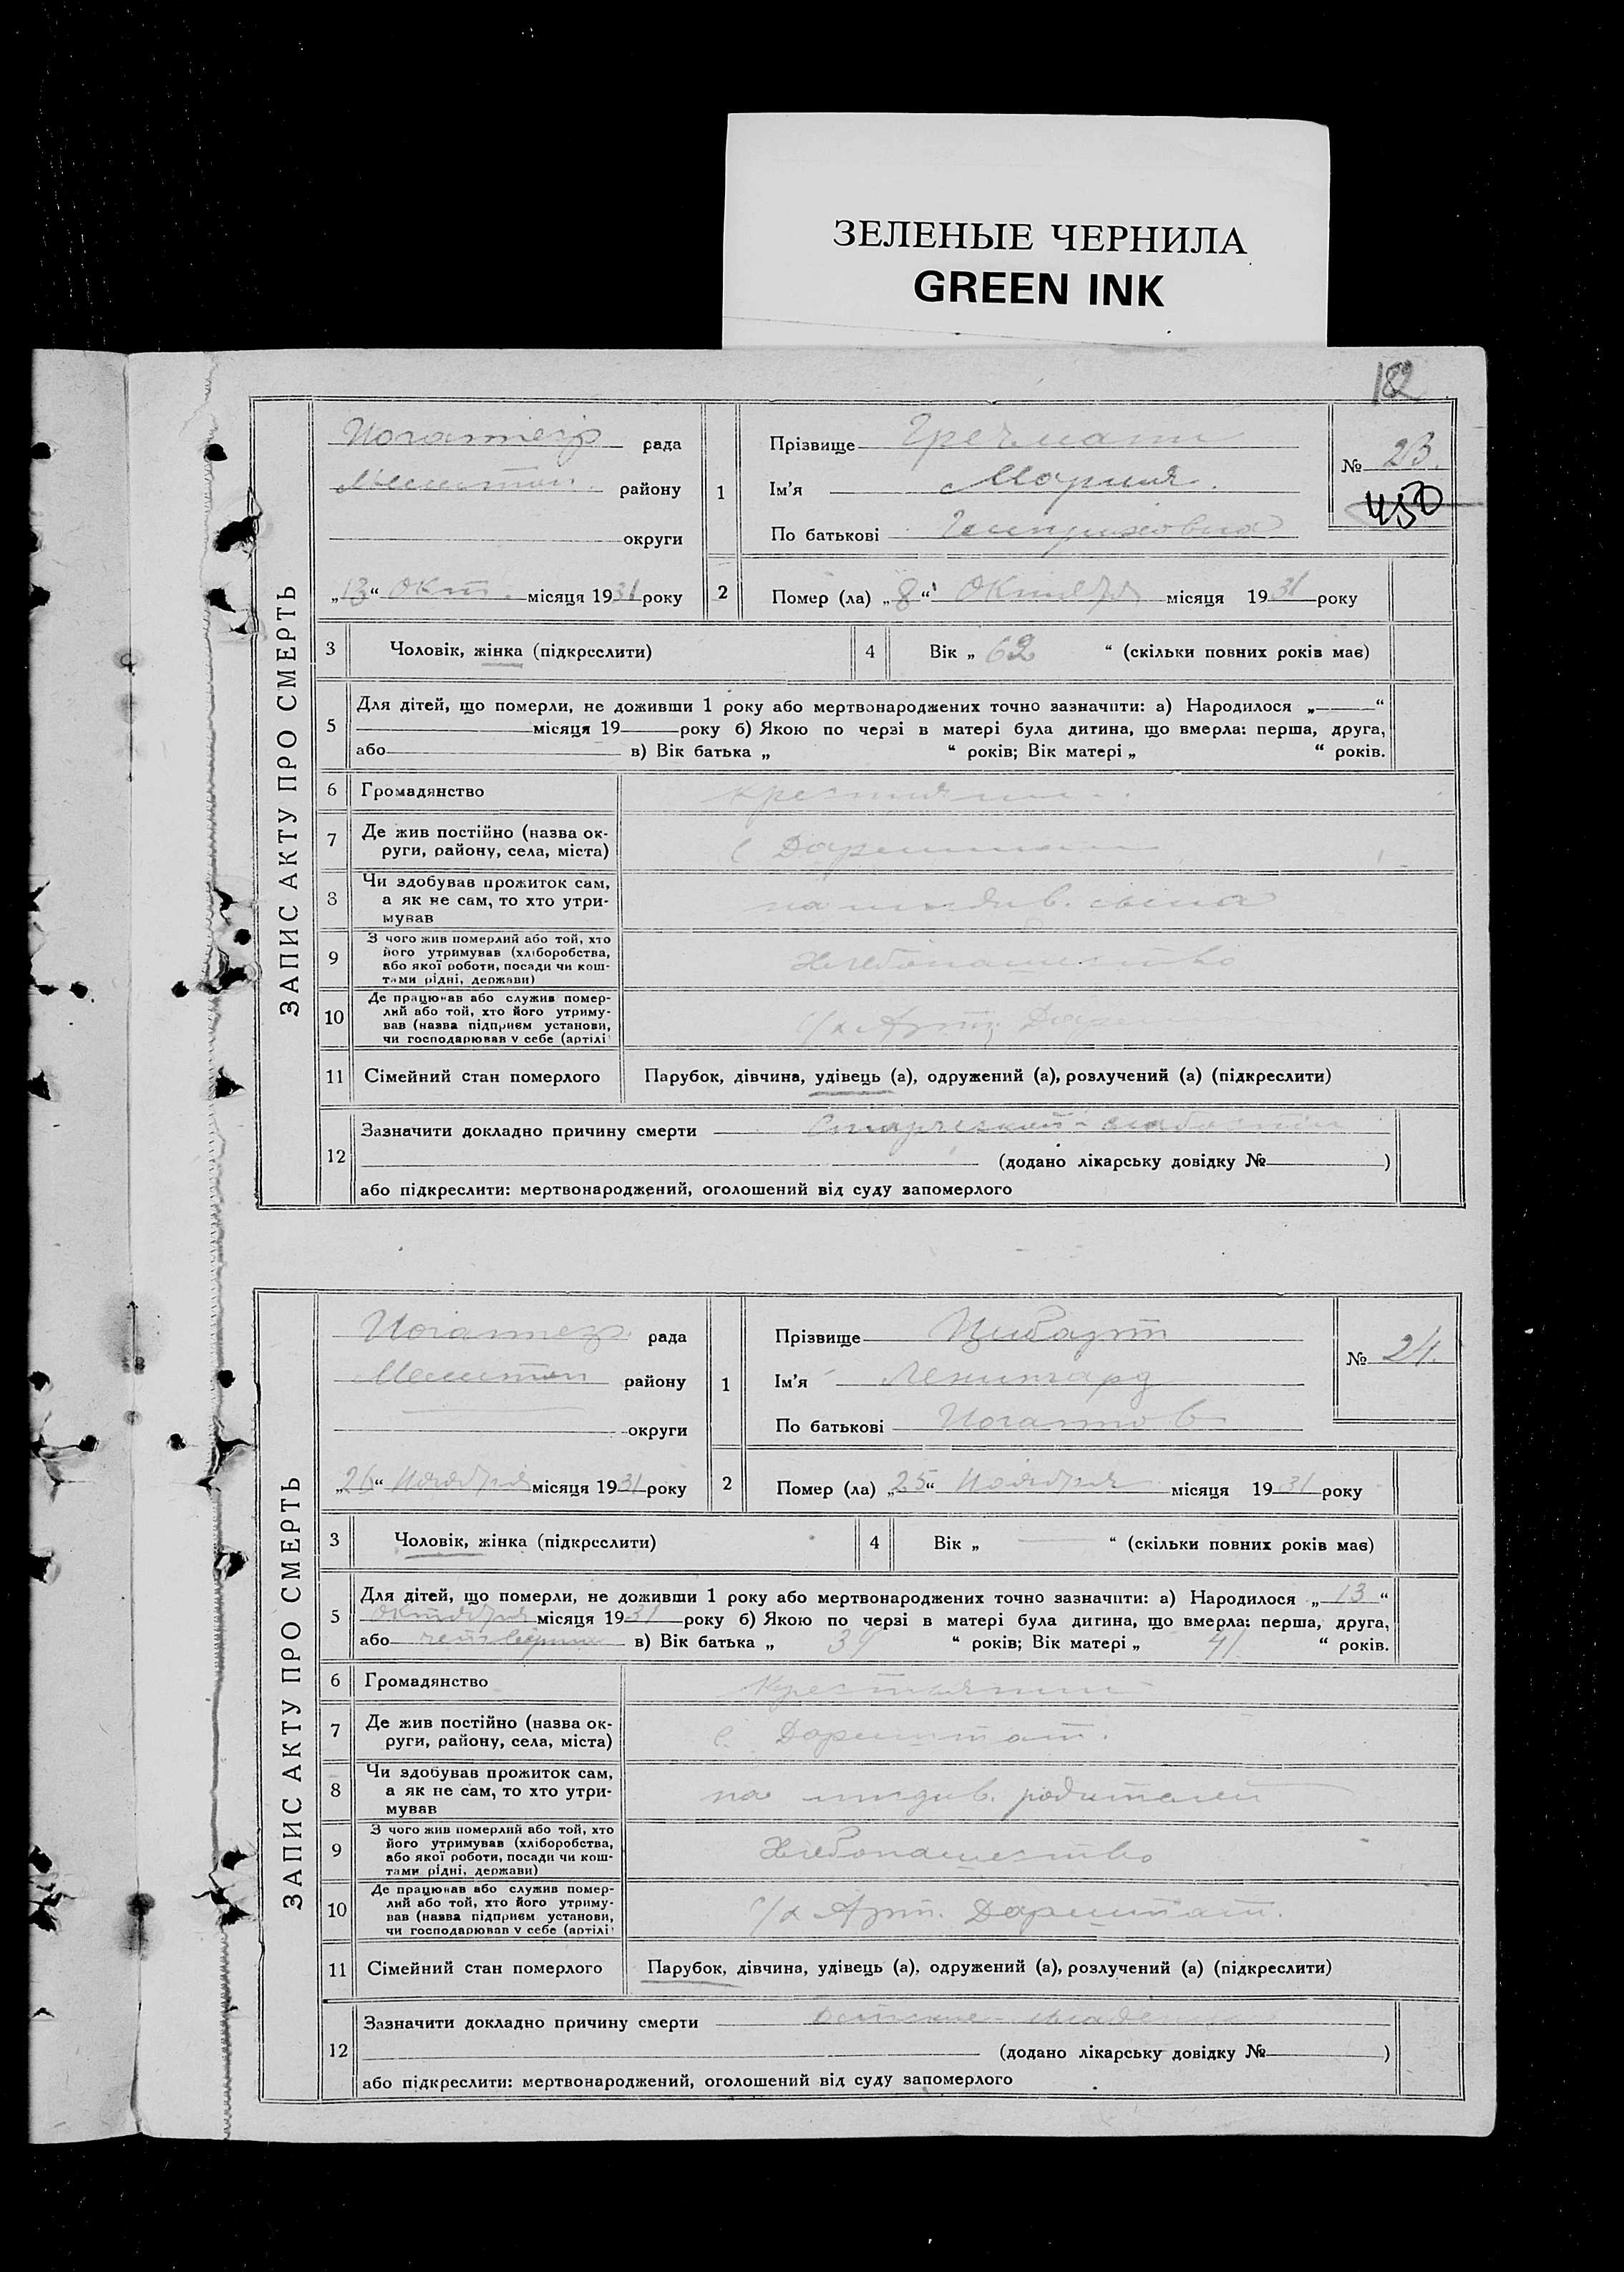 ЗЕЛЕНЫЕ ЧЕРНИЛА
GREEN INK
182
ЗАПИС АКТУ ПРО СМЕРТЬ
рада
району
округи
„13“ Окт. місяця 1931 року
1
Прізвище
Ім'я Мария.
По батькові
№ 23.
450
2
Помер (ла) „8“ Октября місяця 1931 року
3 Чоловік, жінка (підкреслити)
4 Вік „62“ (скільки повних років має)
5 Для дітей, що померли, не доживши 1 року або мертвонароджених точно зазначити: а) Народилося „ “
місяця 19 року б) Якою по черзі в матері була дитина, що вмерла: перша, друга,
або в) Вік батька „ “ років; Вік матері „ “ років.
6 Громадянство
7 Де жив постійно (назва ок-
руги, району, села, міста)
8 Чи здобував прожиток сам,
а як не сам, то хто утри-
мував
9 З чого жив померлий або той, хто
його утримував (хліборобства,
або якої роботи, посади чи кош-
тами рідні, держави)
Хлебопашество
10 Де працював або служив помер-
лий або той, хто його утриму-
вав (назва підприєм установи,
чи господарював у себе (артілі
с/х Арт.
11 Сімейний стан померлого Парубок, дівчина, удівець (а), одружений (а), розлучений (а) (підкреслити)
12 Зазначити докладно причину смерти
(додано лікарську довідку № )
або підкреслити: мертвонароджений, оголошений від суду запомерлого
ЗАПИС АКТУ ПРО СМЕРТЬ
рада
району
округи
„26“ Ноября місяця 1931 року
1
Прізвище Цибарт
Ім'я
По батькові
№ 24.
2
Помер (ла) „25“ Ноября місяця 1931 року
3 Чоловік, жінка (підкреслити)
4 Вік „ — “ (скільки повних років має)
5 Для дітей, що померли, не доживши 1 року або мертвонароджених точно зазначити: а) Народилося „13“
октября місяця 1931 року б) Якою по черзі в матері була дитина, що вмерла: перша, друга,
або в) Вік батька „ “ років; Вік матері „41“ років.
6 Громадянство Крестьянин
7 Де жив постійно (назва ок-
руги, району, села, міста)
с. Дармштат.
8 Чи здобував прожиток сам,
а як не сам, то хто утри-
мував
на иждив. родителей
9 З чого жив померлий або той, хто
його утримував (хліборобства,
або якої роботи, посади чи кош-
тами рідні, держави)
Хлебопашество
10 Де працював або служив помер-
лий або той, хто його утриму-
вав (назва підприєм установи,
чи господарював у себе (артілі
С/х Арт. Дармштат.
11 Сімейний стан померлого Парубок, дівчина, удівець (а), одружений (а), розлучений (а) (підкреслити)
12 Зазначити докладно причину смерти
(додано лікарську довідку № )
або підкреслити: мертвонароджений, оголошений від суду запомерлого